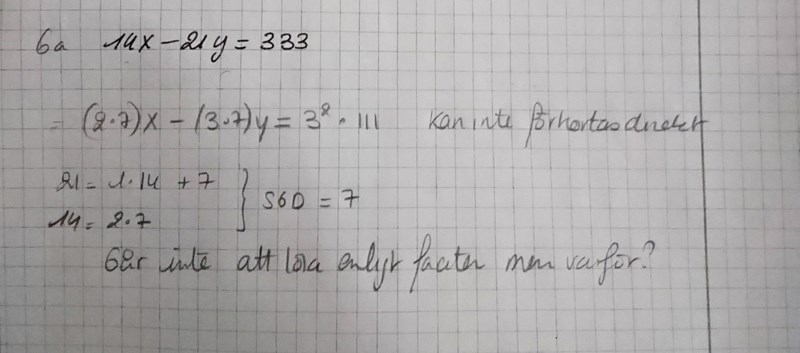 6a 14x - 21y = 333
= (2·7)x - (3·7)y = 3²·111 kan inte förkortas direkt
21 = 1·14 + 7
14 = 2·7 } SGD = 7
Går inte att lösa enligt faciten men varför?